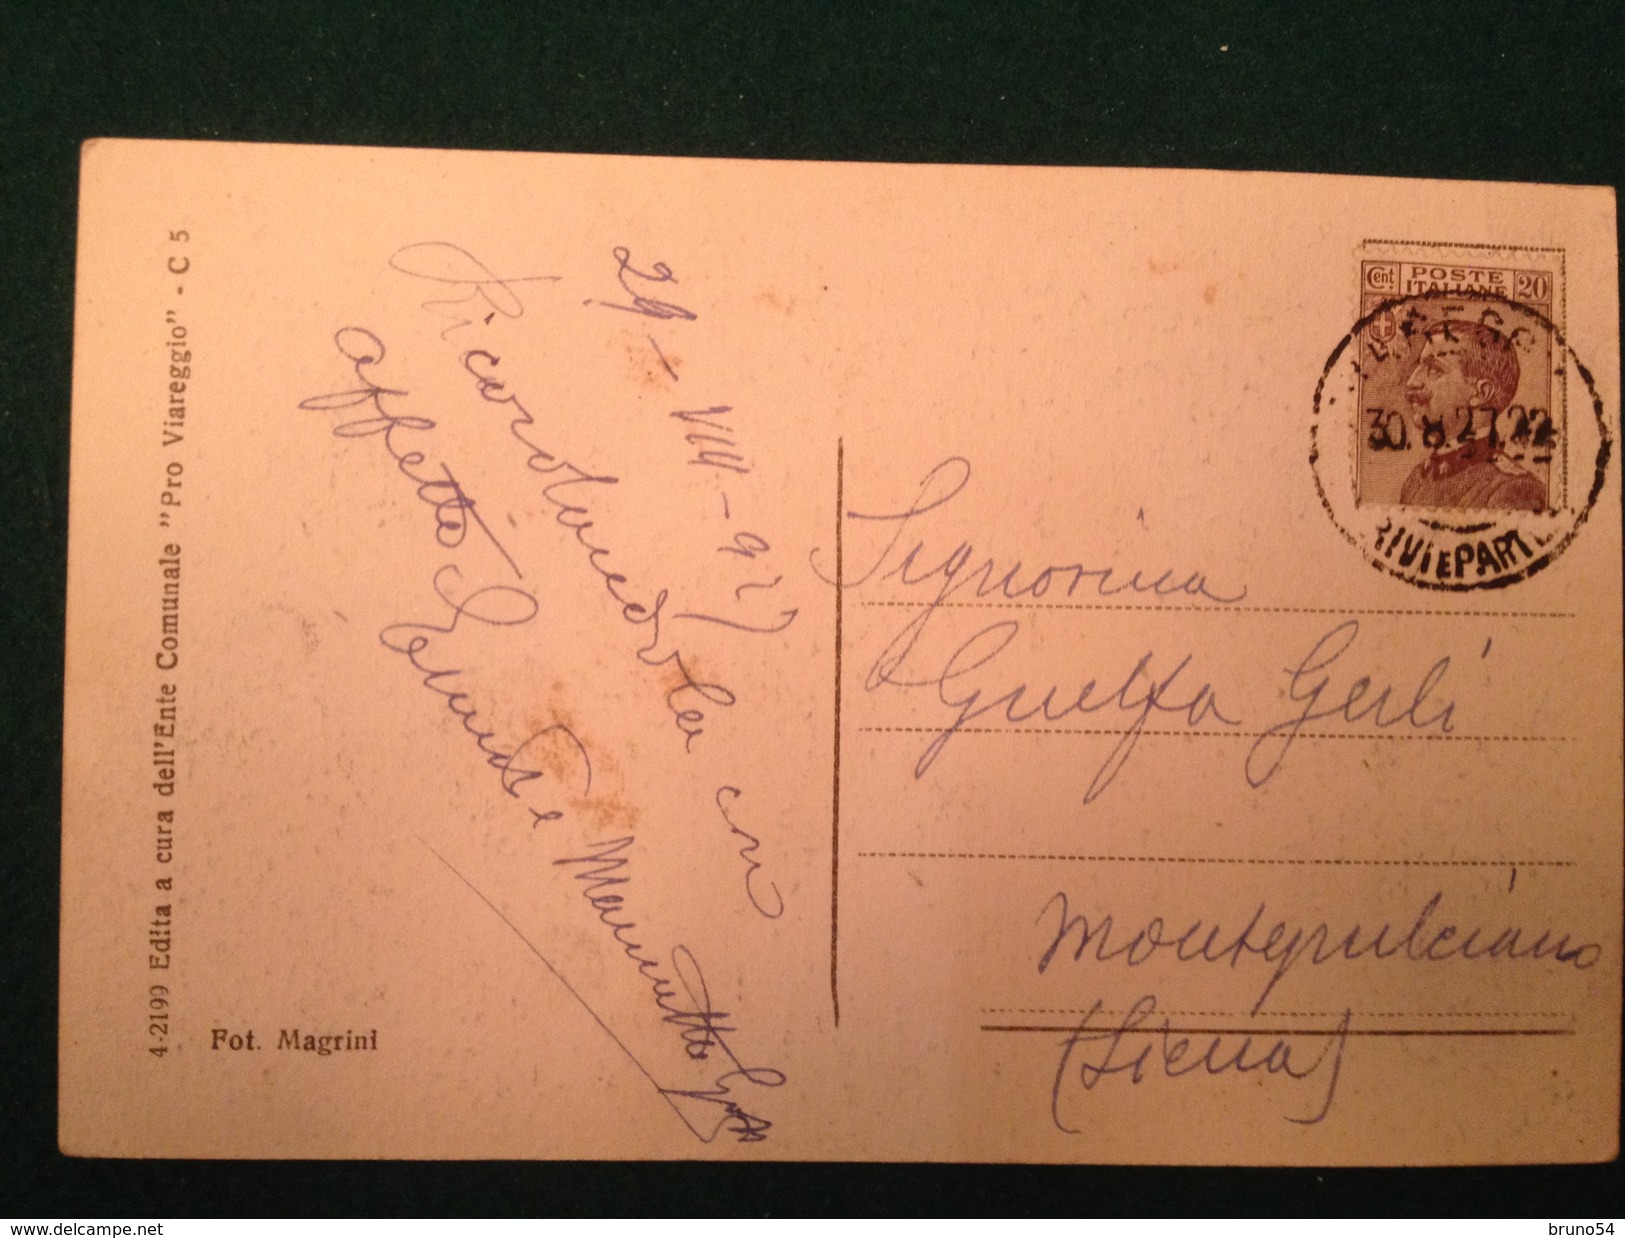 4-2199 Edita a cura dell'Ente Comunale "Pro Viareggio" - C 5
Fot. Magrini
29-VIII-927
Ricordandovela con
affetto
e
Cent. POSTE ITALIANE 20
30.8.27.22
ARRIVI E PART
Signorina
Guelfa Gerli
Montepulciano
(Siena)
www.delcampe.net
bruno54